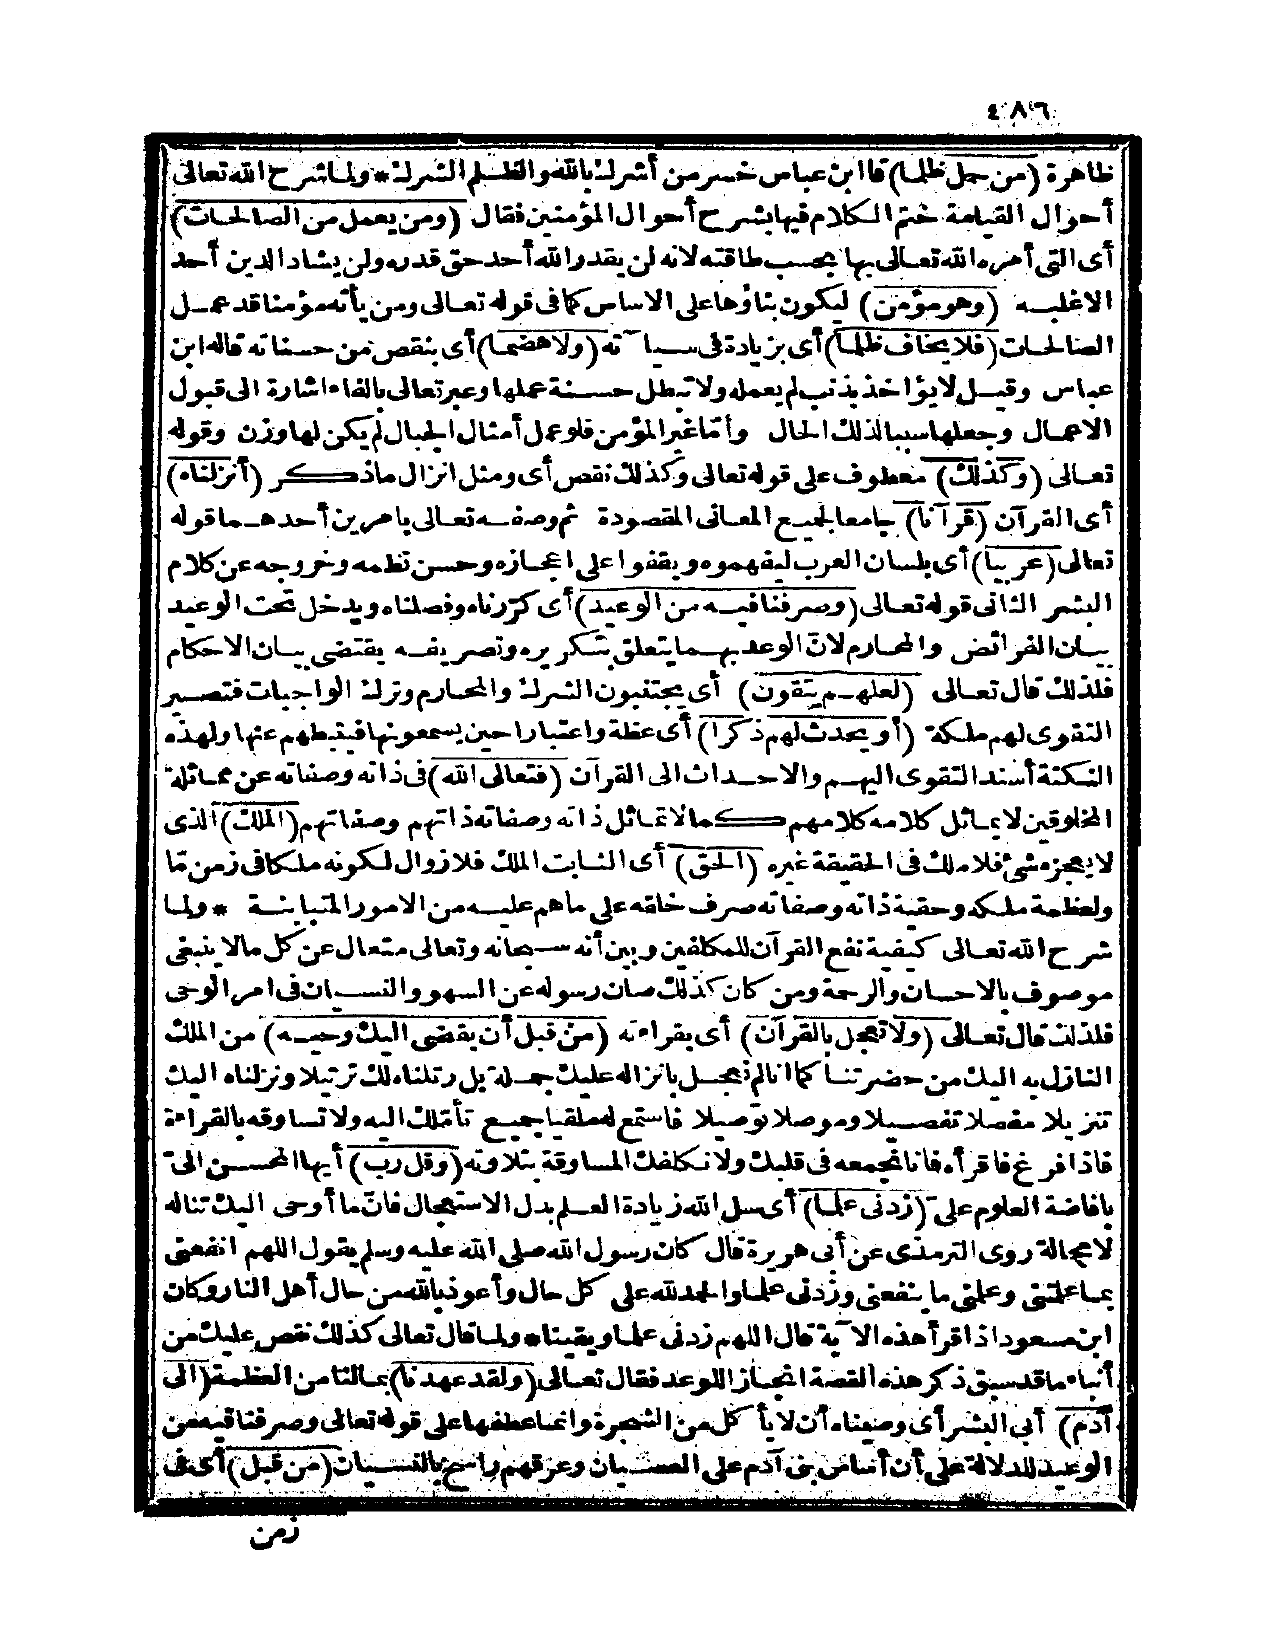 ٤٨٦
ظاهرة (من حمل ظلما) قال ابن عباس خسر من أشرك بالله والظلم الشرك * ولما شرح الله تعالى
أحوال القيامة ختم الكلام فيها بشرح أحوال المؤمنين فقال (ومن يعمل من الصالحات)
أى التى أمره الله تعالى بها بحسب طاقته لانه لن يقدر الله أحد حق قدره ولن يشاد الدين أحد
الاغلبه (وهو مؤمن) ليكون بناؤها على الاساس كما فى قوله تعالى ومن يأته مؤمنا قد عمل
الصالحات (فلا يخاف ظلما) أى بزيادة فى سيآته (ولا هضما) أى بنقص من حسناته قاله ابن
عباس وقيل لا يؤاخذ بذنب لم يعمله ولا تبطل حسنة عملها وعبر تعالى بالفاء اشارة الى قبول
الاعمال وجعلها سببا لذلك الحال وأمّا غير المؤمن فلو عمل أمثال الجبال لم يكن لها وزن وقوله
تعالى (وكذلك) معطوف على قوله تعالى وكذلك نقص أى ومثل انزال ماذكر (أنزلناه)
أى القرآن (قرآنا) جامعا لجميع المعانى المقصودة ثم وصفه تعالى بامرين أحدهما قوله
تعالى (عربيا) أى بلسان العرب ليفهموه ويقفوا على اعجازه وحسن نظمه وخروجه عن كلام
البشر الثانى قوله تعالى (وصرفنا فيه من الوعيد) أى كرّرناه وفصلناه ويدخل تحت الوعيد
بيان الفرائض والمحارم لانّ الوعد بهما يتعلق بتكريره وتصريفه يقتضى بيان الاحكام
فلذلك قال تعالى (لعلهم يتقون) أى يجتنبون الشرك والمحارم وترك الواجبات فتصير
التقوى لهم ملكة (أو يحدث لهم ذكرا) أى عظة واعتبارا حين يسمعونها فيثبطهم عنها ولهذه
النكتة أسند التقوى اليهم والاحداث الى القرآن (فتعالى الله) فى ذاته وصفاته عن مماثلة
المخلوقين لا يماثل كلامه كلامهم كما لا تماثل ذاته وصفاته ذاتهم وصفاتهم (الملك) الذى
لا يعجزه شئ فلا ملك فى الحقيقة غيره (الحق) أى الثابت الملك فلا زوال لكونه ملكا فى زمن مّا
ولعظمة ملكه وحقية ذاته وصفاته صرف خلقه على ما هم عليه من الامور المتباينة * ولما
شرح الله تعالى كيفية نفع القرآن للمكلفين وبين أنه سبحانه وتعالى متعال عن كل مالا ينبغى
موصوف بالاحسان والرحمة ومن كان كذلك صان رسوله عن السهو والنسيان فى امر الوحى
فلذلك قال تعالى (ولا تعجل بالقرآن) أى بقراءته (من قبل أن يقضى اليك وحيه) من الملك
النازل به اليك من حضرتنا كما انا لم نعجل بانزاله عليك جملة بل رتلناه لك ترتيلا ونزلناه اليك
تنزيلا مفصلا تفصيلا وموصلا توصيلا فاستمع له ملقيا جميع تأملك اليه ولا تساوقه بالقراءة
فاذا فرغ فاقرأه فانا نجمعه فى قلبك ولا نكلفك المساوقة بتلاوته (وقل رب) أيها المحسن الىّ
بافاضة العلوم علىّ (زدنى علما) أى سل الله زيادة العلم بدل الاستعجال فانّ ما أوحى اليك تناله
لا محالة روى الترمذى عن أبى هريرة قال كان رسول الله صلى الله عليه وسلم يقول اللهم انفعنى
بما علمتنى وعلمنى ما ينفعنى وزدنى علما والحمد لله على كل حال وأعوذ بالله من حال أهل النار وكان
ابن مسعود اذا قرأ هذه الآية قال اللهم زدنى علما ويقينا * ولما قال تعالى كذلك نقص عليك من
أنباء ما قد سبق ذكر هذه القصة انجازا للوعد فقال تعالى (ولقد عهدنا) بمالنا من العظمة (الى
آدم) أبى البشر أى وصيناه أن لا يأكل من الشجرة وانما عطفها على قوله تعالى وصرفنا فيه من
الوعيد للدلالة على أن أساس بنى آدم على العصيان وعرقهم راسخ بالنسيان (من قبل) أى فى
زمن